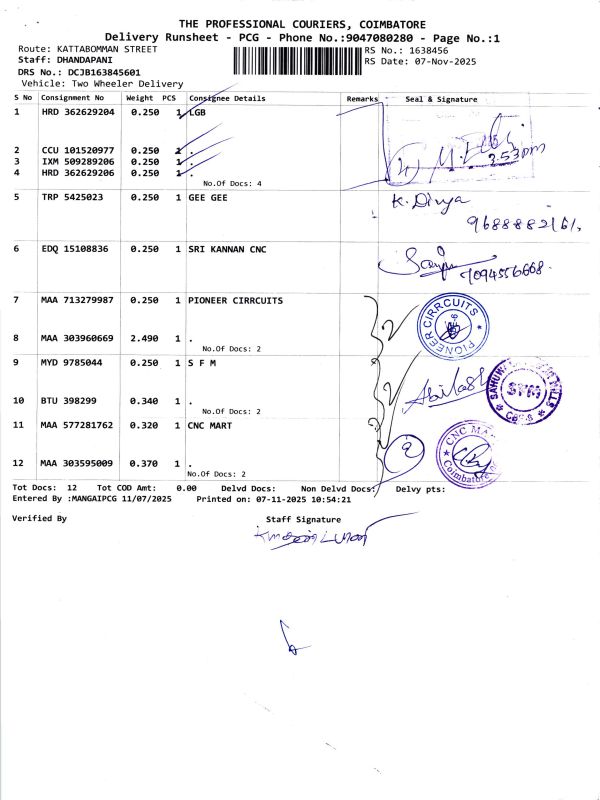 THE PROFESSIONAL COURIERS, COIMBATORE
Delivery Runsheet - PCG - Phone No.:9047080280 - Page No.:1
Route: KATTABOMMAN STREET
RS No.: 1638456
Staff: DHANDAPANI
RS Date: 07-Nov-2025
DRS No.: DCJB163845601
Vehicle: Two Wheeler Delivery
S No Consignment No Weight PCS Consignee Details Remarks Seal & Signature
1 HRD 362629204 0.250 1 LGB
2 CCU 101520977 0.250 1 .
3 IXM 509289206 0.250 1 .
4 HRD 362629206 0.250 1 .
No.Of Docs: 4
(4)
3.53pm
5 TRP 5425023 0.250 1 GEE GEE
K. Divya
9688882161.
6 EDQ 15108836 0.250 1 SRI KANNAN CNC
7094556668.
7 MAA 713279987 0.250 1 PIONEER CIRRCUITS
PIONEER CIRRCUITS
2
8 MAA 303960669 2.490 1 .
No.Of Docs: 2
9 MYD 9785044 0.250 1 S F M
2
Abilash
SFM
10 BTU 398299 0.340 1 .
No.Of Docs: 2
11 MAA 577281762 0.320 1 CNC MART
2
CNC MA
Coimbatore
12 MAA 303595009 0.370 1 .
No.Of Docs: 2
Tot Docs: 12 Tot COD Amt: 0.00 Delvd Docs: Non Delvd Docs: Delvy pts:
Entered By :MANGAIPCG 11/07/2025 Printed on: 07-11-2025 10:54:21
Verified By
Staff Signature